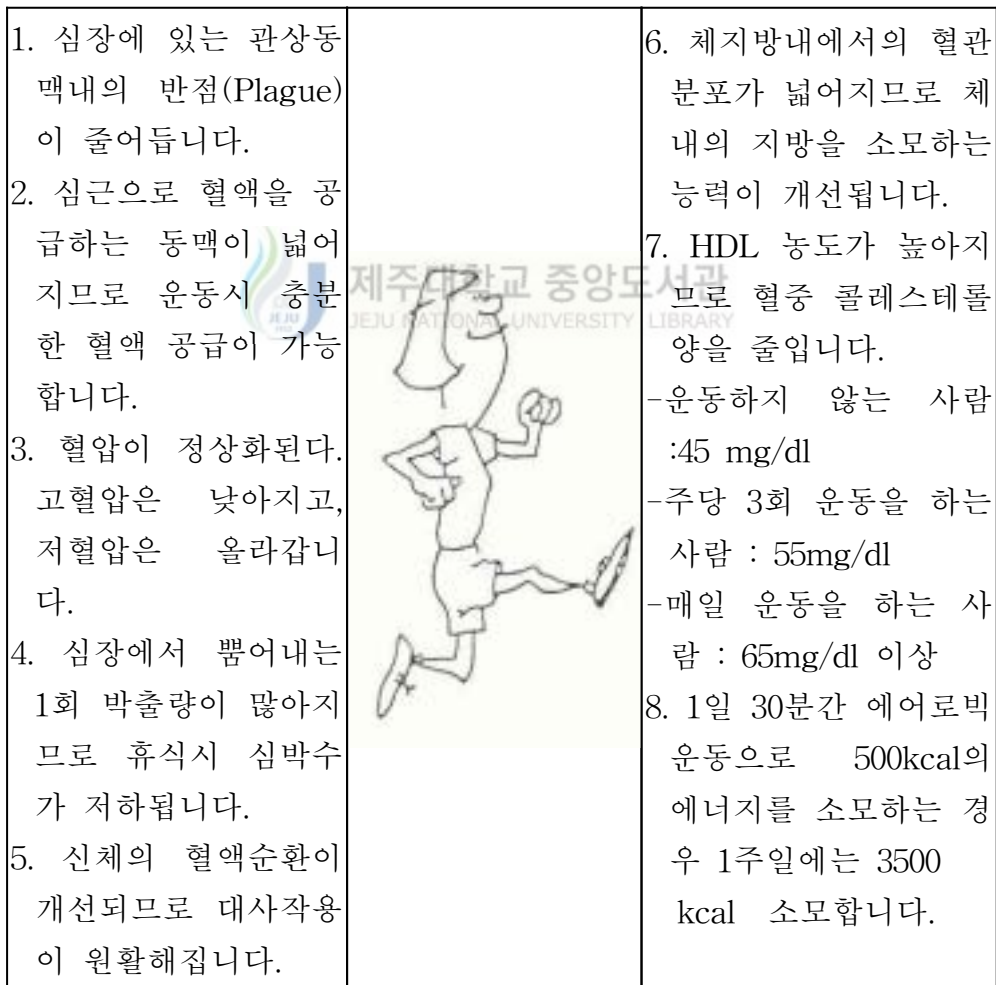 1. 심장에 있는 관상동
맥내의 반점(Plague)
이 줄어듭니다.
2. 심근으로 혈액을 공
급하는 동맥이 넓어
지므로 운동시 충분
한 혈액 공급이 가능
합니다.
3. 혈압이 정상화된다.
고혈압은 낮아지고,
저혈압은 올라갑니
다.
4. 심장에서 뿜어내는
1회 박출량이 많아지
므로 휴식시 심박수
가 저하됩니다.
5. 신체의 혈액순환이
개선되므로 대사작용
이 원활해집니다.
제주대학교 중앙도서관
JEJU NATIONAL UNIVERSITY LIBRARY
JEJU
1952
6. 체지방내에서의 혈관
분포가 넓어지므로 체
내의 지방을 소모하는
능력이 개선됩니다.
7. HDL 농도가 높아지
므로 혈중 콜레스테롤
양을 줄입니다.
-운동하지 않는 사람
:45 mg/dl
-주당 3회 운동을 하는
사람 : 55mg/dl
-매일 운동을 하는 사
람 : 65mg/dl 이상
8. 1일 30분간 에어로빅
운동으로 500kcal의
에너지를 소모하는 경
우 1주일에는 3500
kcal 소모합니다.